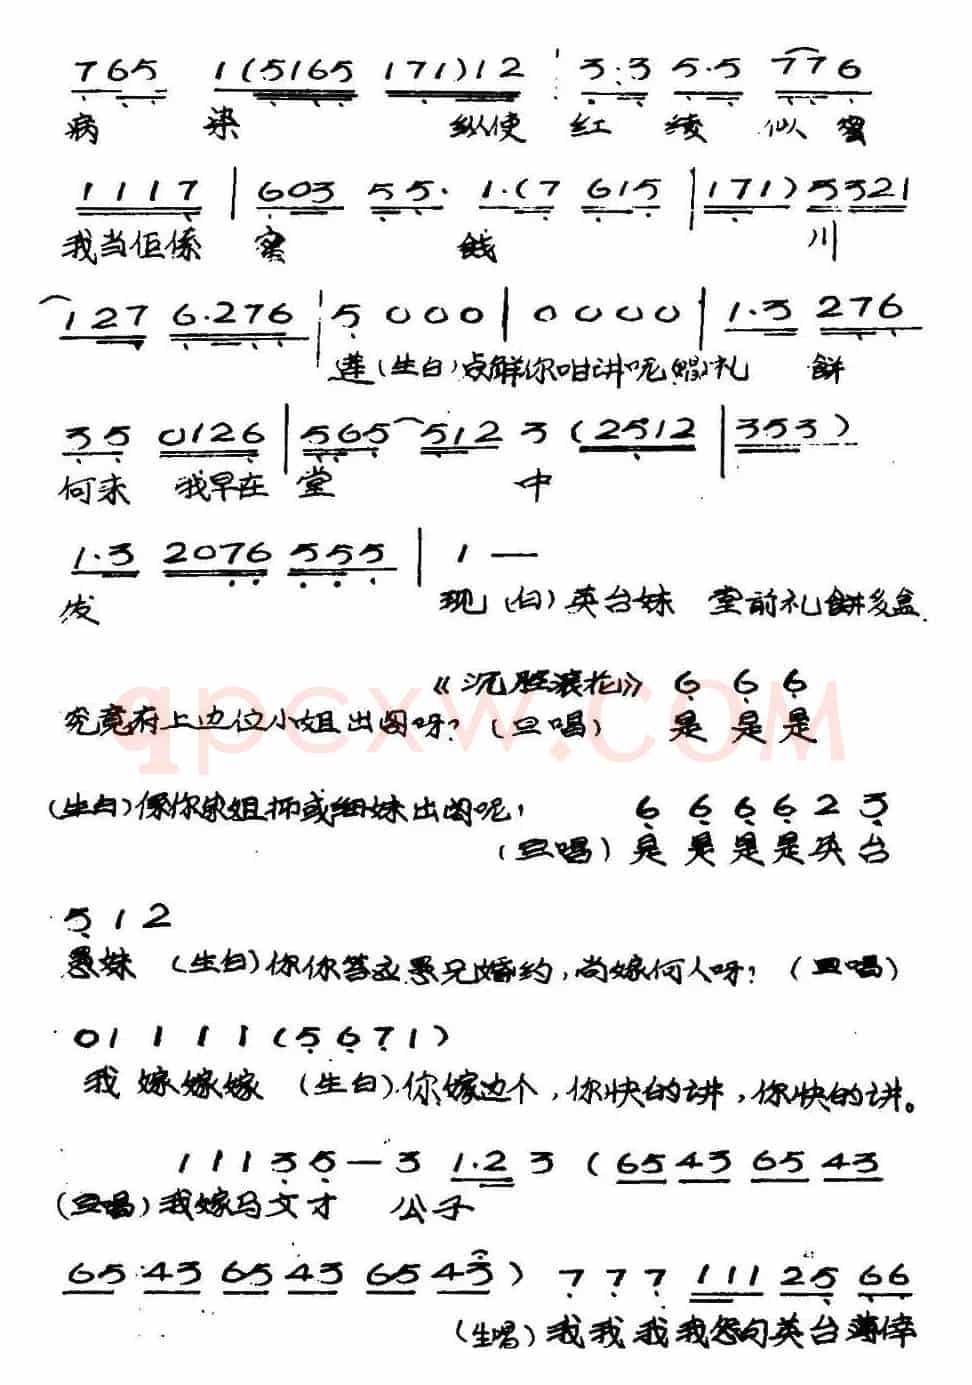 765 1(5165 171)12 3·3 5·5 776
病 染 纵使 红 绫 似 蜜
1117 | 603 55· 1·(7 615 | 171) 53321
我当佢係 蜜 饯 川
127 6·276 | 5000 | 0000 | 1·3 276
莲 (生白) 点解你咁讲呢 (唱) 礼 餅
35 0126 | 565 512 3 (2512 | 353)
何来 我早在 堂 中
1·3 2076 555 | 1 —
发 现 (白) 英台妹 堂前礼餅多盒.
《沉腔滚花》 6 6 6
究竟府上边位小姐出阁呀? (旦唱) 是 是 是
(生白) 係你家姐抑或细妹出阁呢, 6 6 6 6 2 3
(旦唱) 是 是 是 是 英 台
5 1 2
愚妹 (生白) 你你答应愚兄婚约, 尚嫁何人呀? (旦唱)
01 1 1 1 (5 6 7 1)
我 嫁嫁嫁 (生白) 你嫁边个, 你快的讲, 你快的讲。
1 1 1 3 5 — 3 1·2 3 (65 43 65 43
(旦唱) 我嫁马文才 公子
65 43 65 43 65 43) 7 7 7 111 25 66
(生唱) 我 我 我 我怨句英台薄倖
qpcxw.COM